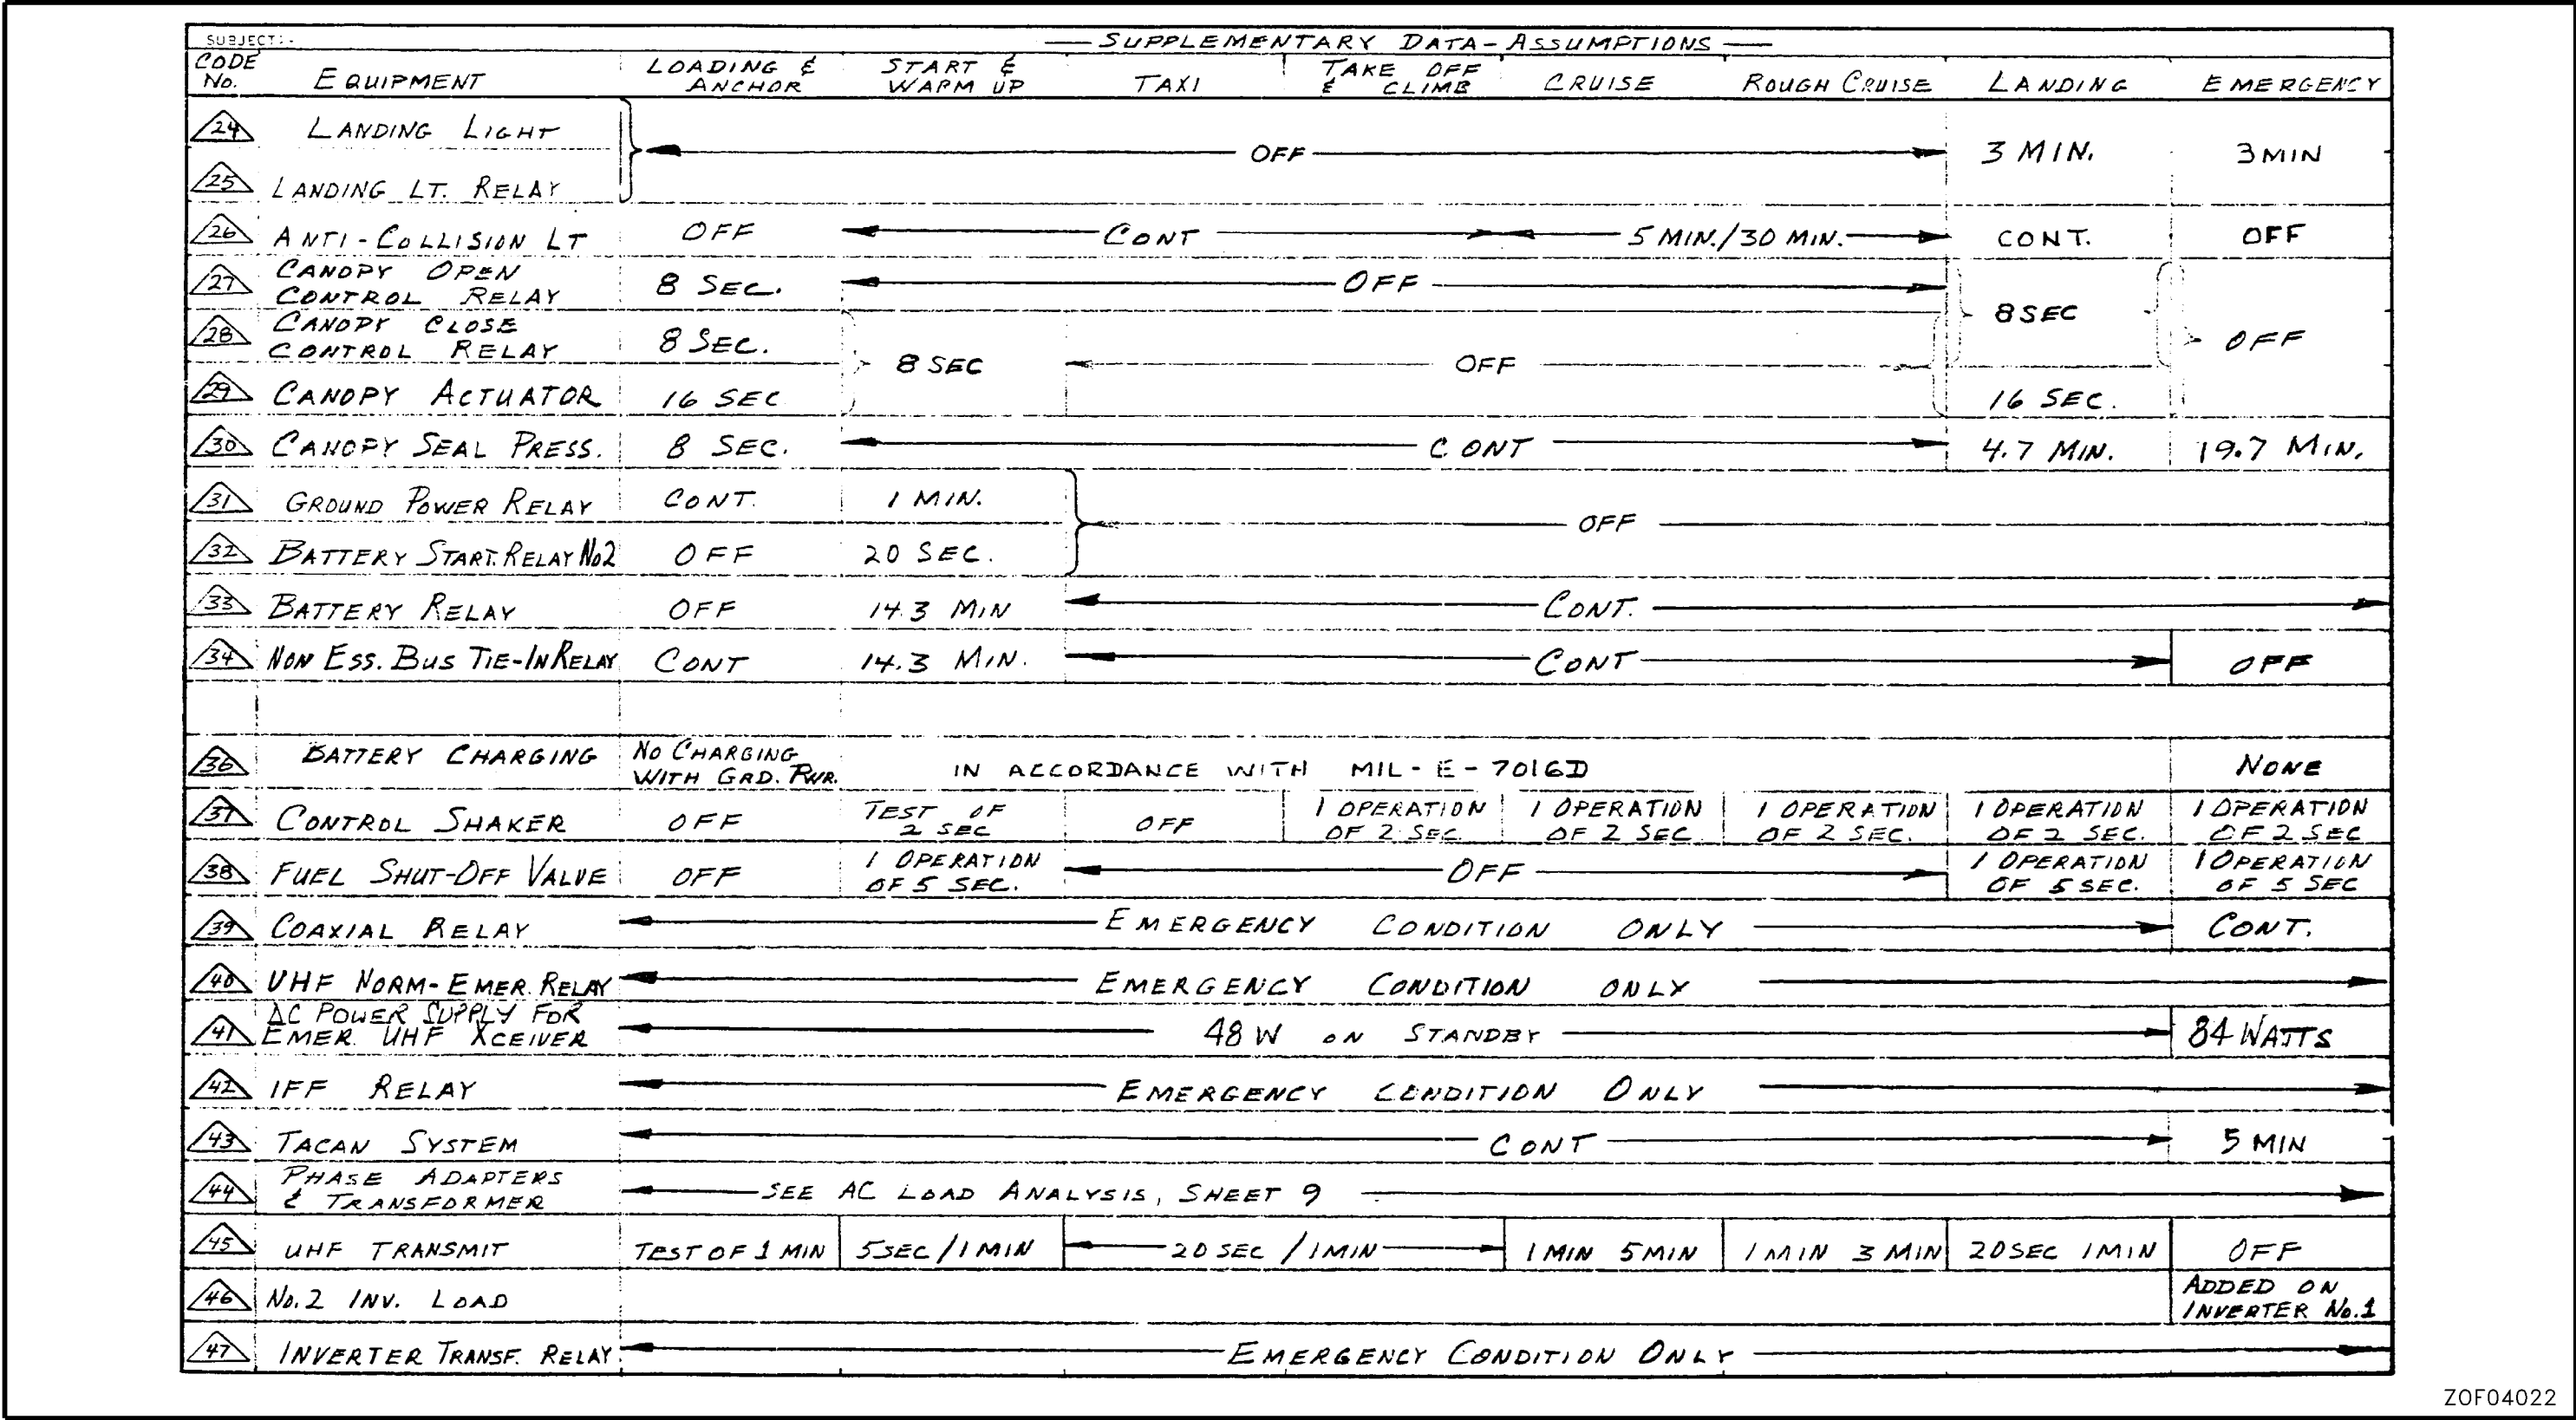 SUBJECT:-
— SUPPLEMENTARY DATA - ASSUMPTIONS —
CODE No. EQUIPMENT LOADING & ANCHOR START & WARM UP TAXI TAKE OFF & CLIMB CRUISE ROUGH CRUISE LANDING EMERGENCY
24 LANDING LIGHT
OFF 3 MIN. 3 MIN
25 LANDING LT. RELAY
26 ANTI-COLLISION LT OFF CONT 5 MIN./30 MIN. CONT. OFF
27 CANOPY OPEN
CONTROL RELAY 8 SEC. OFF
8 SEC
28 CANOPY CLOSE
CONTROL RELAY 8 SEC.
OFF
8 SEC OFF
29 CANOPY ACTUATOR 16 SEC 16 SEC.
30 CANOPY SEAL PRESS. 8 SEC. CONT 4.7 MIN. 19.7 MIN.
31 GROUND POWER RELAY CONT. 1 MIN.
OFF
32 BATTERY START. RELAY No2 OFF 20 SEC.
33 BATTERY RELAY OFF 14.3 MIN CONT.
34 NON ESS. BUS TIE-IN RELAY CONT 14.3 MIN. CONT OFF
36 BATTERY CHARGING NO CHARGING
WITH GRD. PWR. IN ACCORDANCE WITH MIL-E-7016D NONE
37 CONTROL SHAKER OFF TEST OF 2 SEC OFF 1 OPERATION OF 2 SEC. 1 OPERATION OF 2 SEC. 1 OPERATION OF 2 SEC. 1 OPERATION OF 2 SEC. 1 OPERATION OF 2 SEC
38 FUEL SHUT-OFF VALVE OFF 1 OPERATION OF 5 SEC. OFF 1 OPERATION OF 5 SEC. 1 OPERATION OF 5 SEC
39 COAXIAL RELAY EMERGENCY CONDITION ONLY CONT.
40 UHF NORM-EMER. RELAY EMERGENCY CONDITION ONLY
41 AC POWER SUPPLY FOR
EMER. UHF XCEIVER 48 W ON STANDBY 84 WATTS
42 IFF RELAY EMERGENCY CONDITION ONLY
43 TACAN SYSTEM CONT 5 MIN
44 PHASE ADAPTERS
& TRANSFORMER SEE AC LOAD ANALYSIS, SHEET 9
45 UHF TRANSMIT TEST OF 1 MIN 5 SEC / 1 MIN 20 SEC / 1 MIN 1 MIN 5 MIN 1 MIN 3 MIN 20 SEC 1 MIN OFF
46 No. 2 INV. LOAD ADDED ON
INVERTER No. 1
47 INVERTER TRANSF. RELAY EMERGENCY CONDITION ONLY
ZOF04022